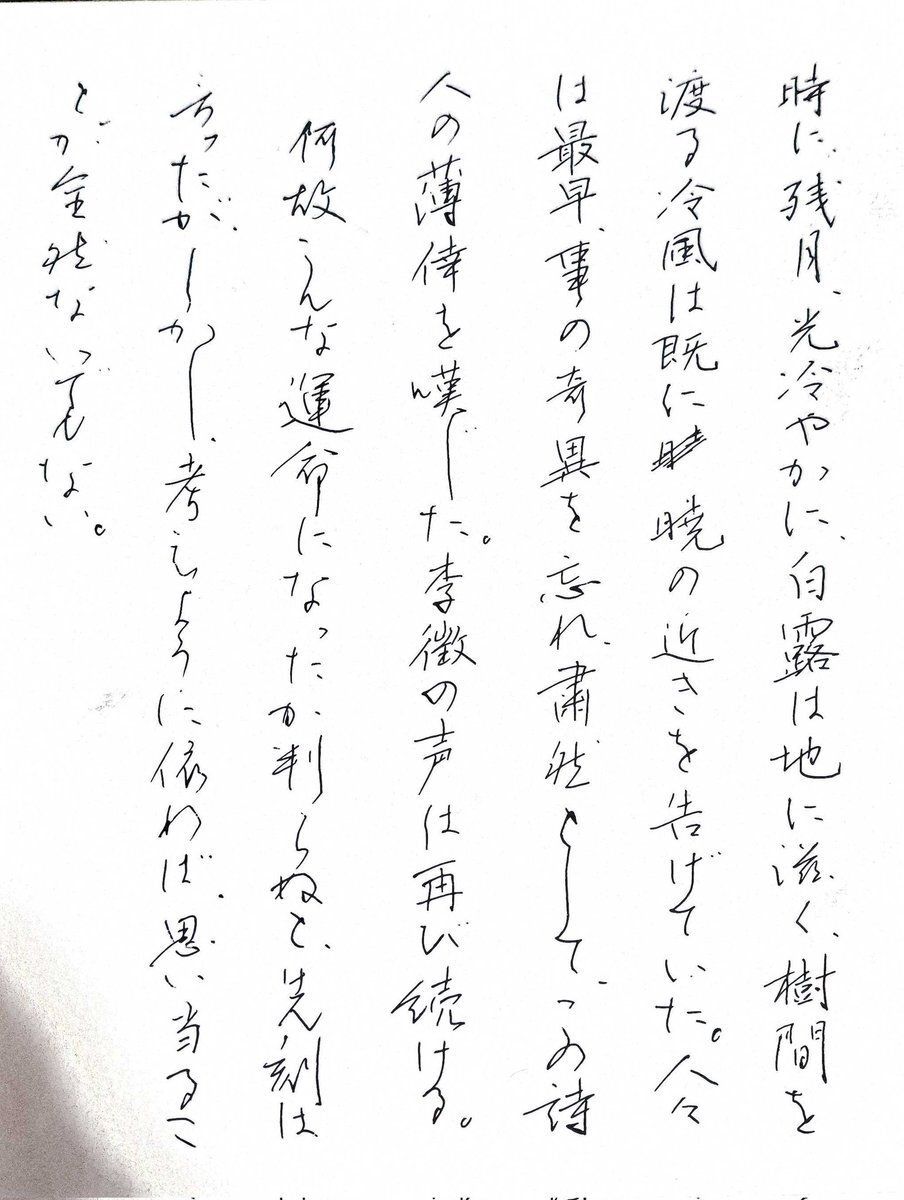 時に、残月、光冷やかに、白露は地に滋く、樹間を
渡る冷風は既に暁の近きを告げていた。人々
は最早、事の奇異を忘れ、粛然として、この詩
人の薄倖を嘆じた。李徴の声は再び続ける。
何故こんな運命になったか判らぬと、先刻は
言ったが、しかし、考えように依れば、思い当るこ
とが全然ないでもない。